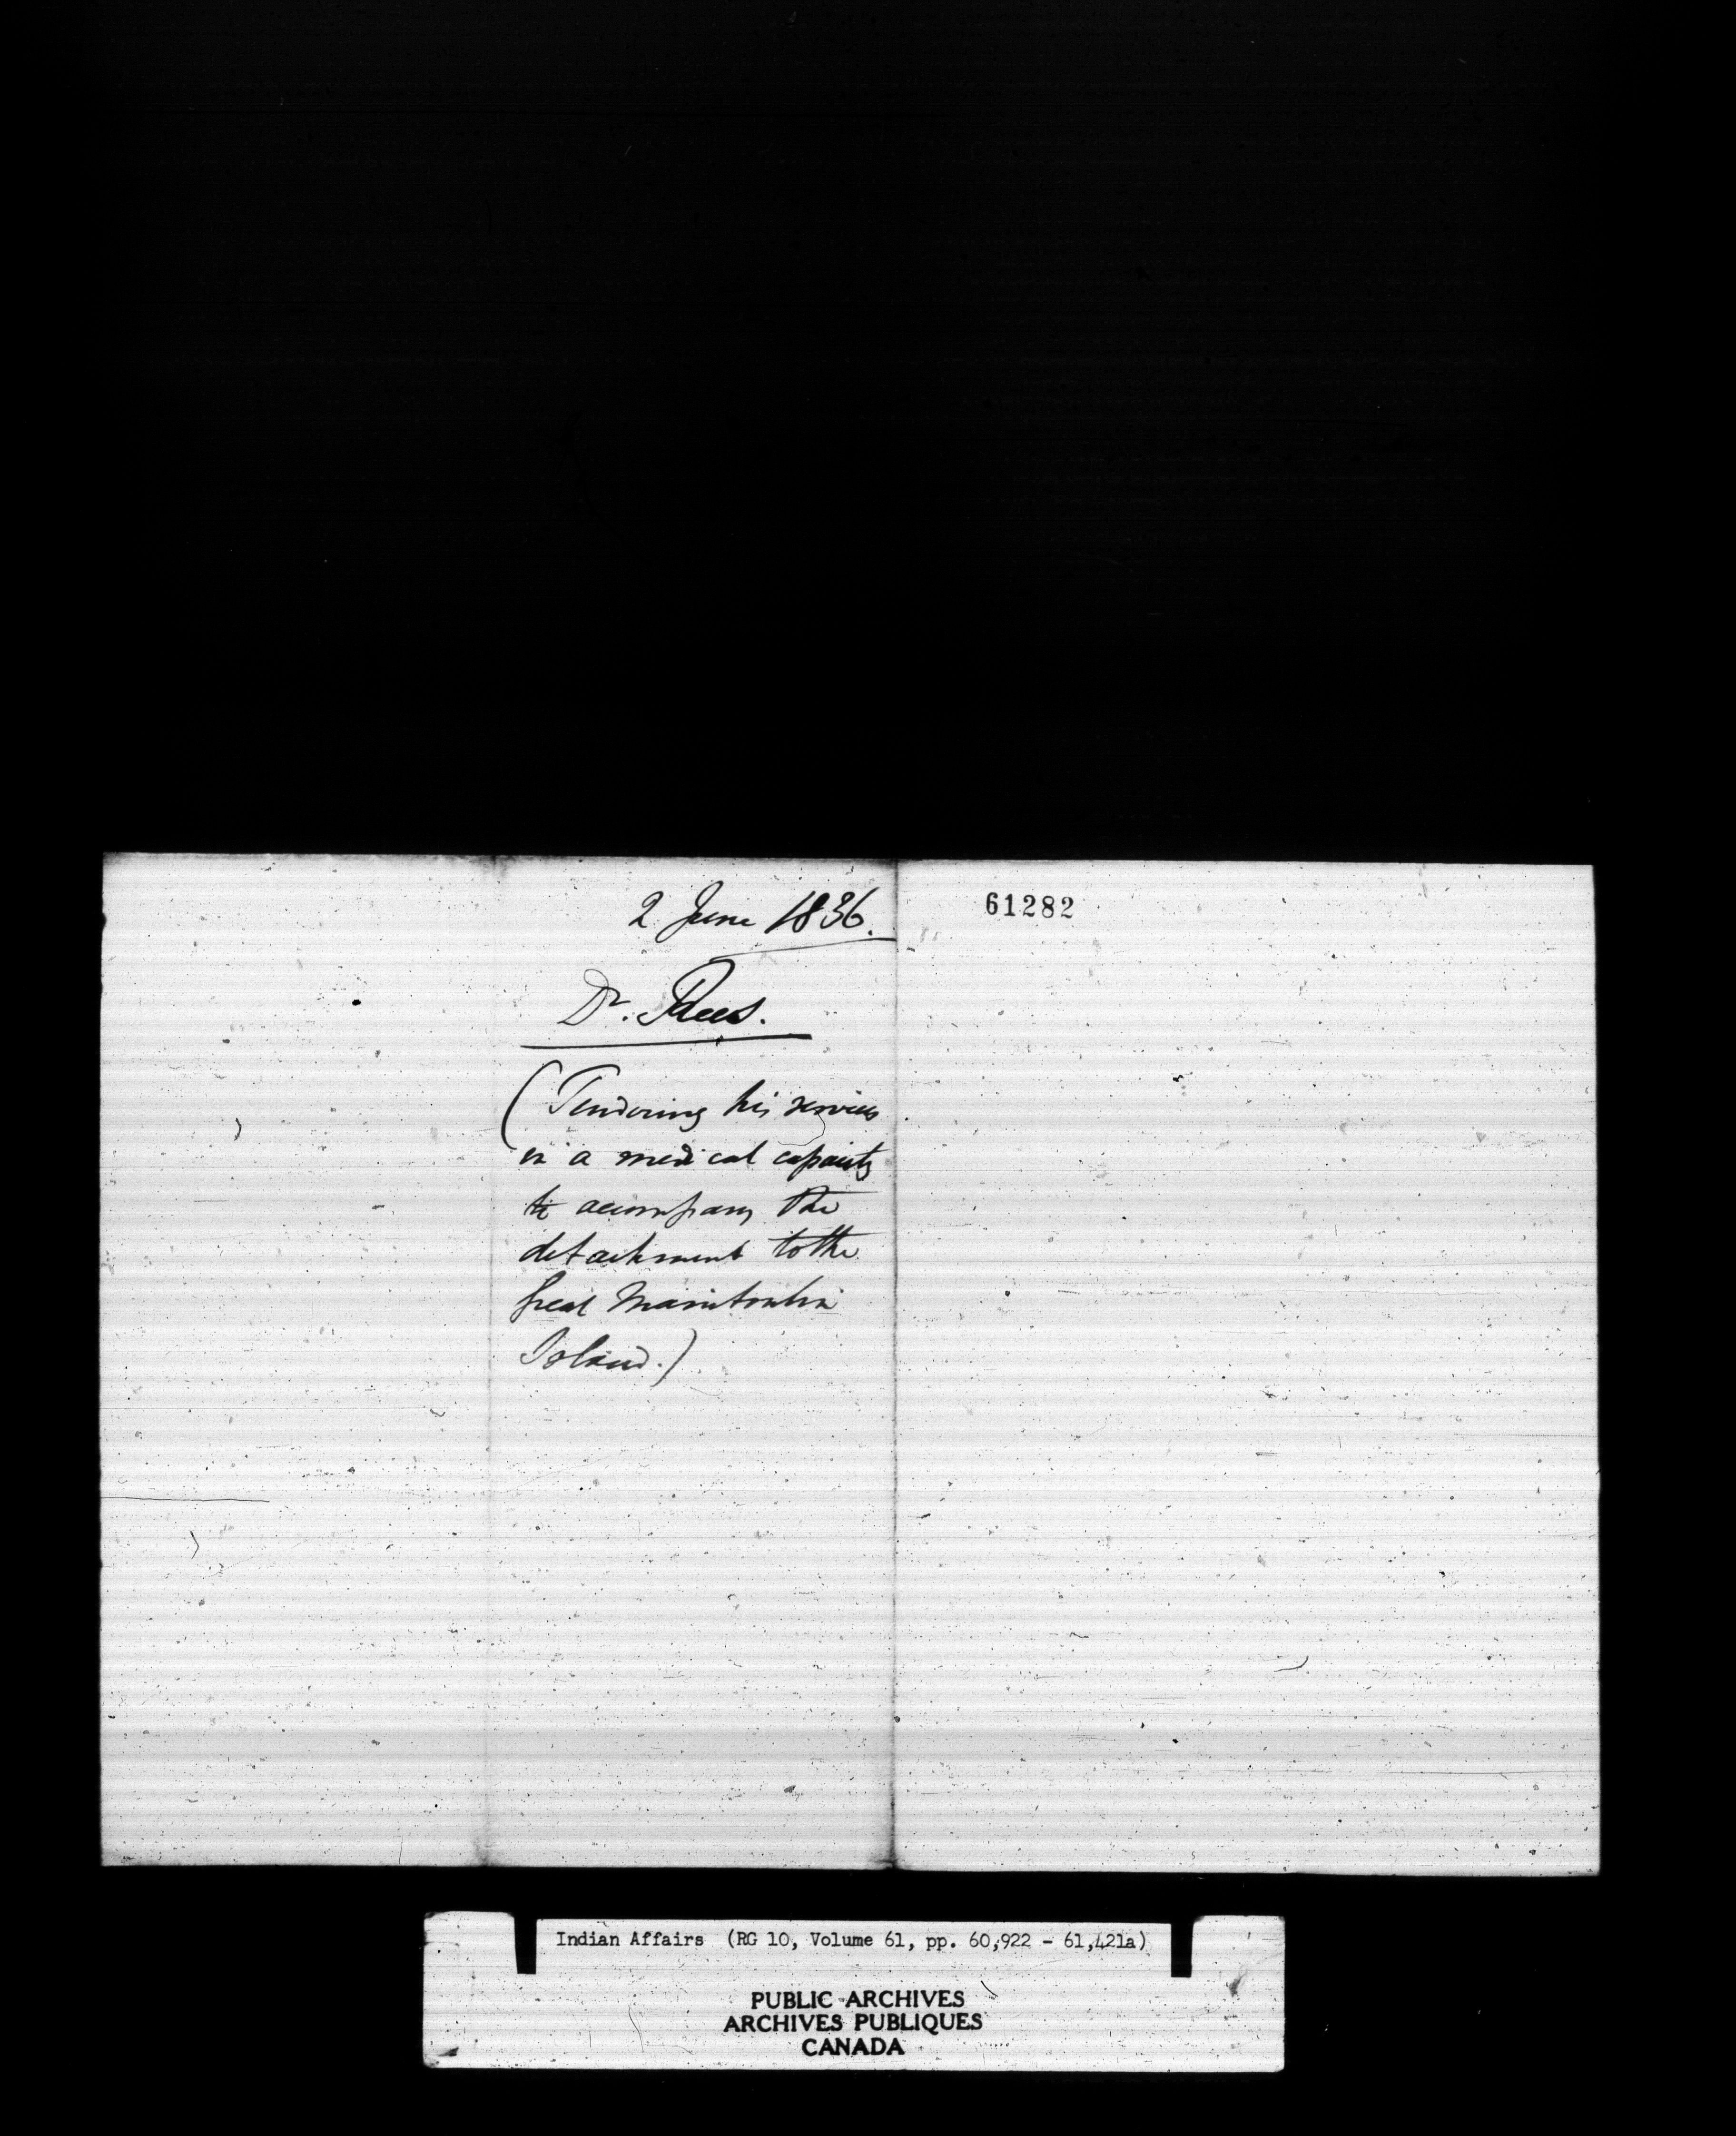 2 June 1836.
61282
Dr. Rees.
(Tendering his services
in a medical capacity
to accompany the
detachment to the
Great Manitoulin
Island.)
Indian Affairs (RG 10, Volume 61, pp. 60,922 - 61,421a)
PUBLIC ARCHIVES
ARCHIVES PUBLIQUES
CANADA